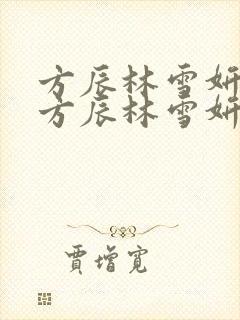 方辰林雪妍
方辰林雪妍
贾增宽